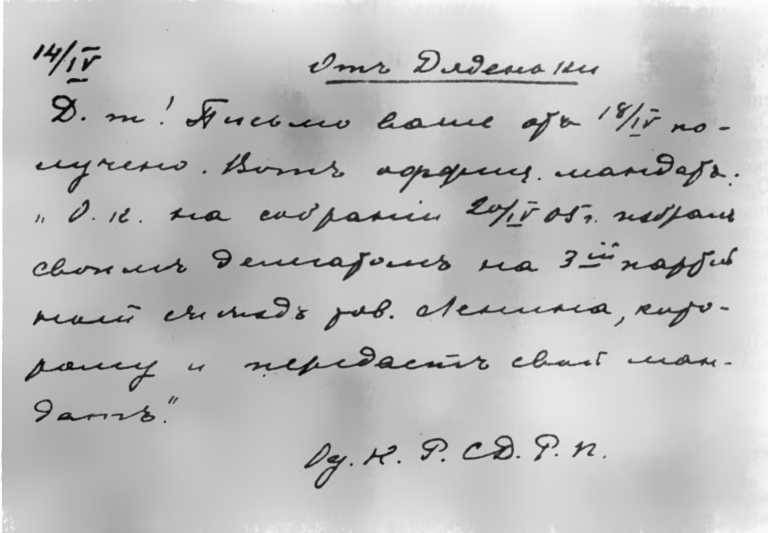 14/IV
Отъ Дяденьки
Д. т! Письмо ваше отъ 18/IV по-
лучено. Вотъ оффиц. мандатъ:
„О. К. на собраніи 20/IV 05 г. избралъ
своимъ делегатомъ на 3 іій партій
ный съѣздъ тов. Ленина, кото-
рому и передастъ свой ман-
датъ."
Од. К. Р. С Д. Р. П.